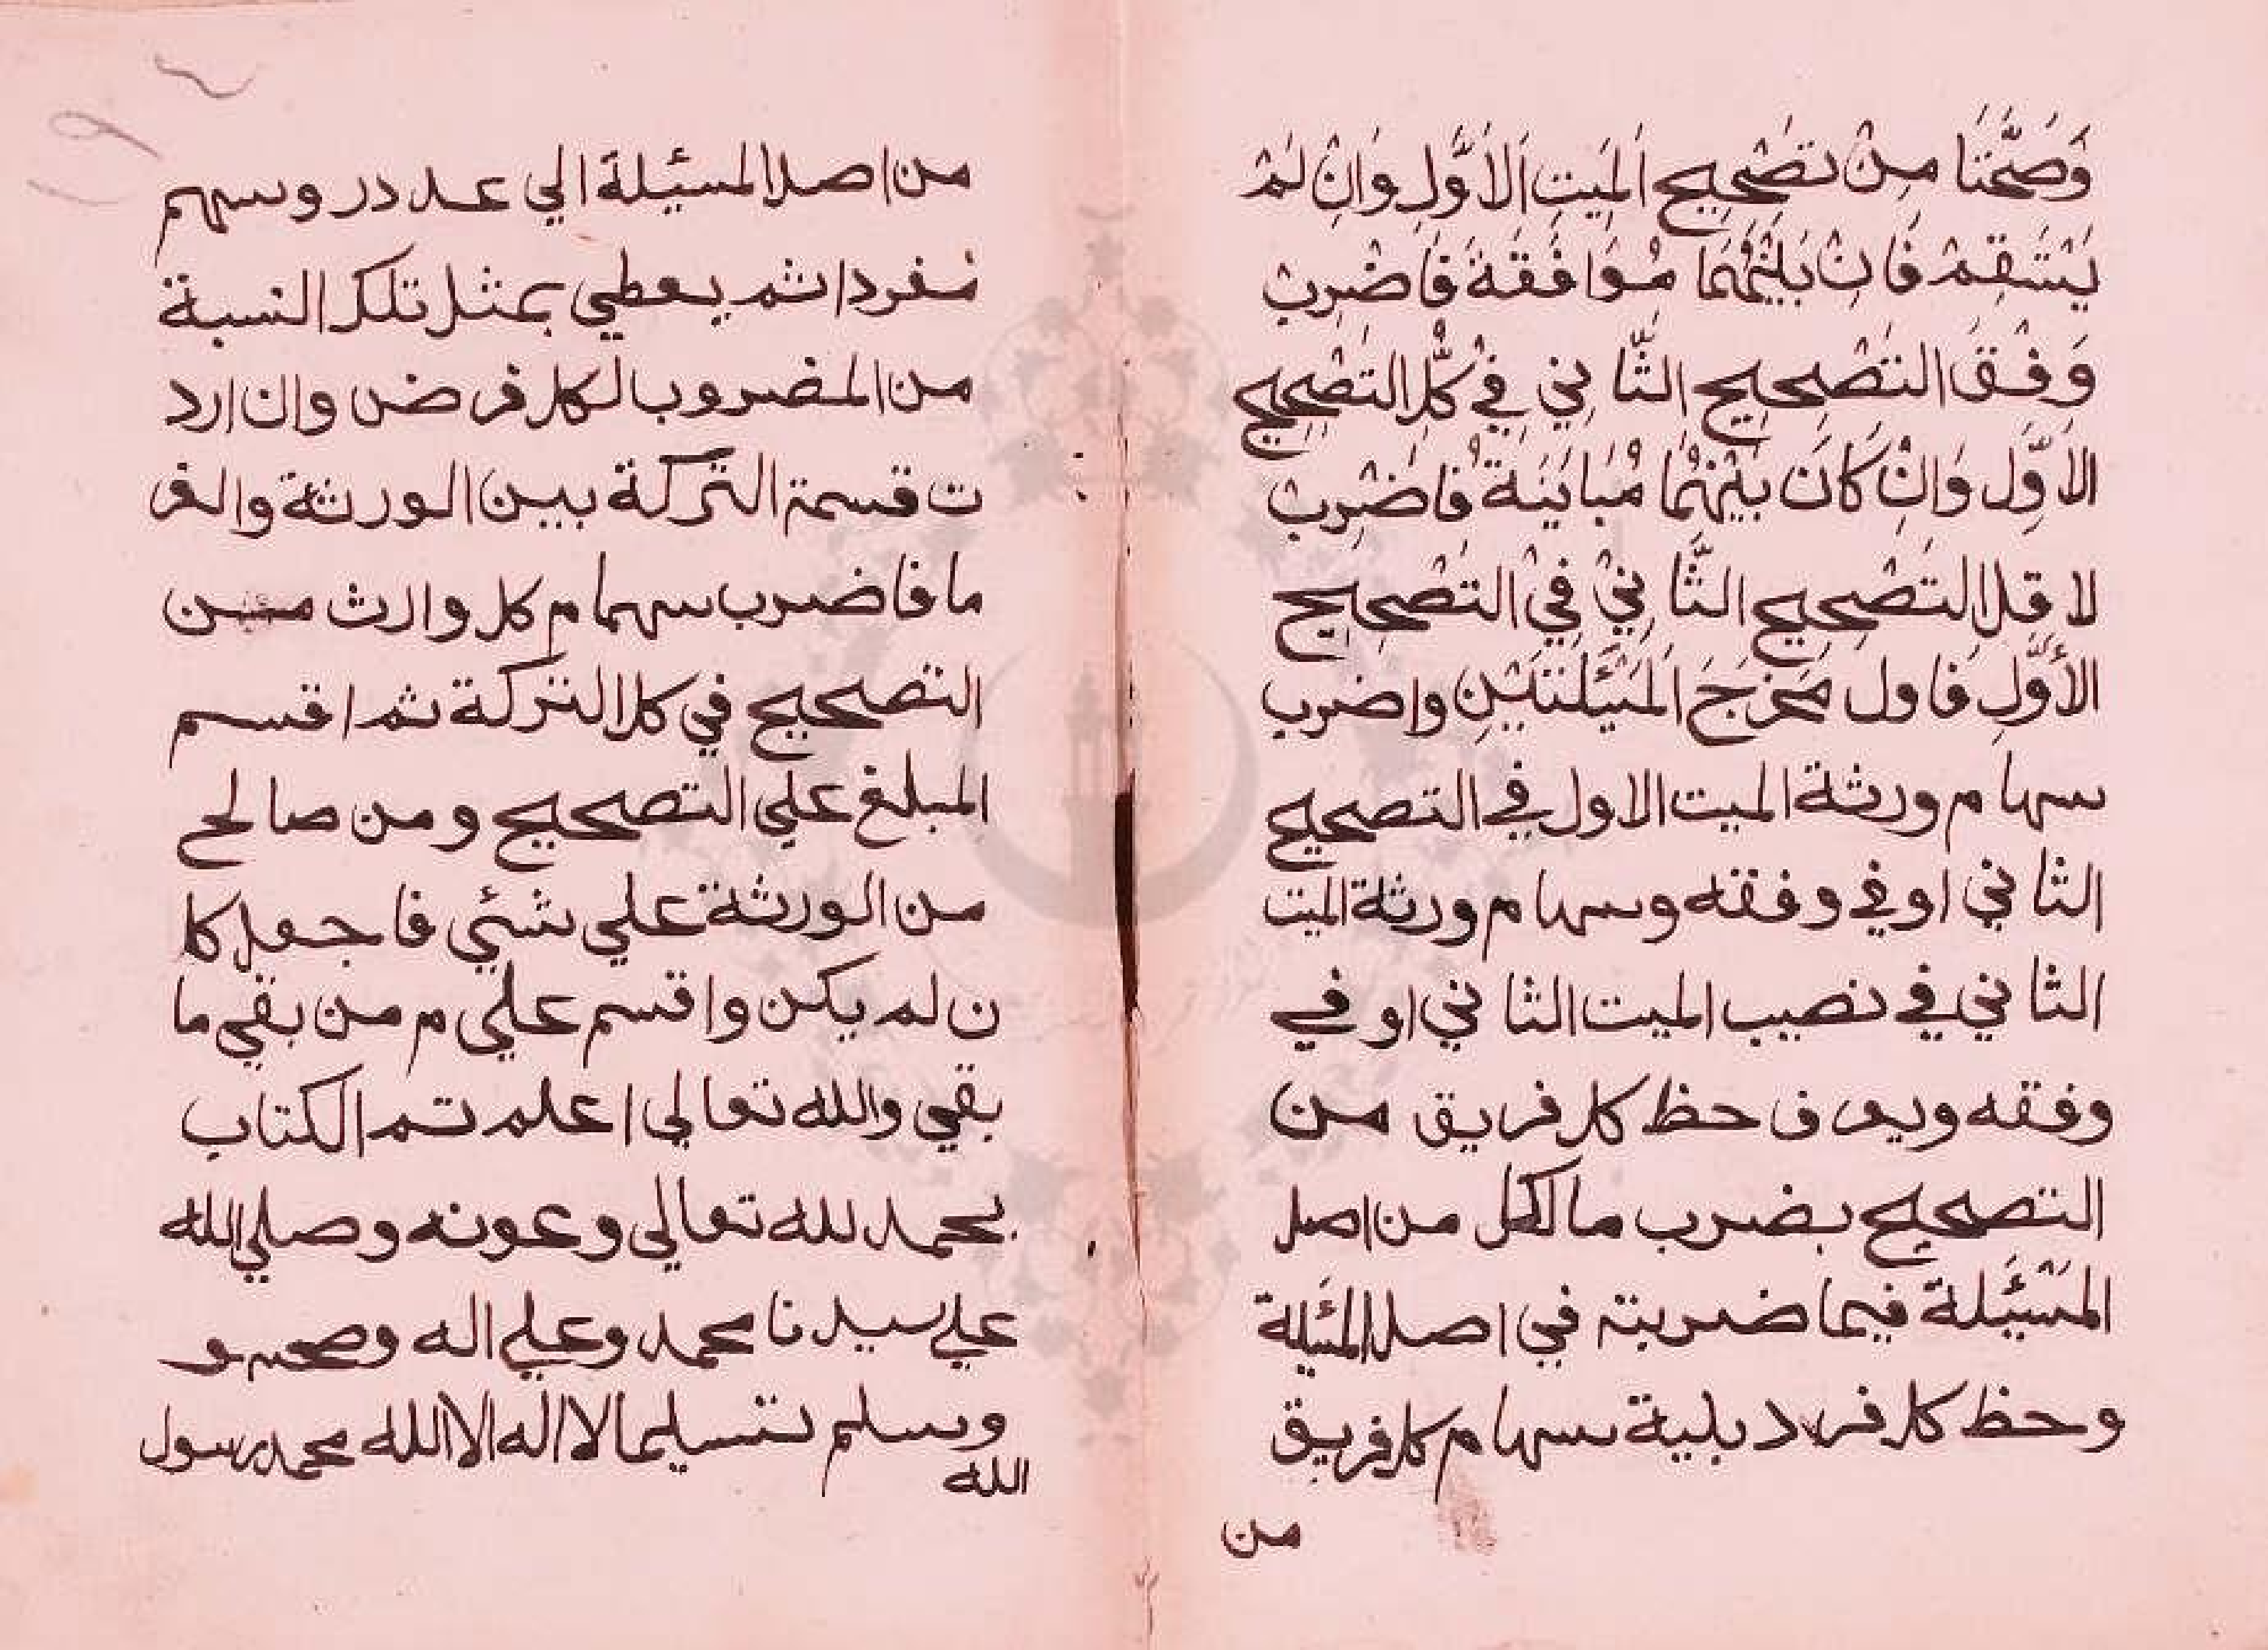 وَصَحَّتَا مِنْ تَصْحِيحِ اَلْمَيِتِ اَلاَوَّلِ وَاِنْ لَمْ
يَسْتَقِمْ فَاِنْ بَيْنَهُمَا مُوَافَقَةٌ فَاضْرِبْ
وَفْقَ التَصْحِيحِ الثَّانِي فِي كُلِّ التَصْحِيحِ
الاَوَّلِ وَاِنْ كَانَ بَيْنَهُمَا مُبَايَنَةٌ فَاضْرِبْ
لا قل التَصْحِيحِ الثَّانِيْ فِيْ التَصْحِيحِ
الأَوَّلِ فاول مَخْرَجَ اَلْمَسْئَلَتَيْنِ واضرب
سهام ورثة الميت الاول في التصحيح
الثاني او في وفقه وسهام ورثة الميت
الثاني في نصيب الميت الثاني او في
وفقه ويعرف حظ كل فريق من
التصحيح بضرب مالكل من اصل
المَسْئَيلة فيما ضربته في اصل المئيلة
وحظ كل فرد بلية سهام كل فريق
من
من اصل المسئيلة الي عدد روسهم
مفردا ثم يعطي بمثل تلك النسبة
من المضروب لكل فرض وان ارد
ت قسمة التركة بين الورثة والغر
ما فاضرب سهام كل وارث من
التصحيح في كل التركة ثم اقسم
المبلغ علي التصحيح ومن صالح
من الورثة علي شئي فاجعل كا
ن لم يكن واقسم علي م من بقي ما
بقي والله تعالي اعلم تم الكتاب
بحمد لله تعالي وعونه وصلي الله
علي سيدنا محمد وعلي اله وصحبه و
وسلم تسليما لا اله الا الله محمد رسول
الله